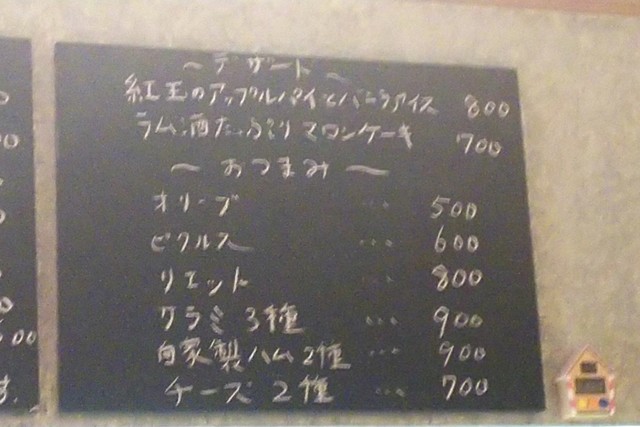 ～デザート～
紅玉のアップルパイとバニラアイス 800
ラム酒たっぷりマロンケーキ 700
～おつまみ～
オリーブ ... 500
ピクルス ... 600
リエット ... 800
サラミ3種 ... 900
自家製ハム2種 ... 900
チーズ2種 ... 700